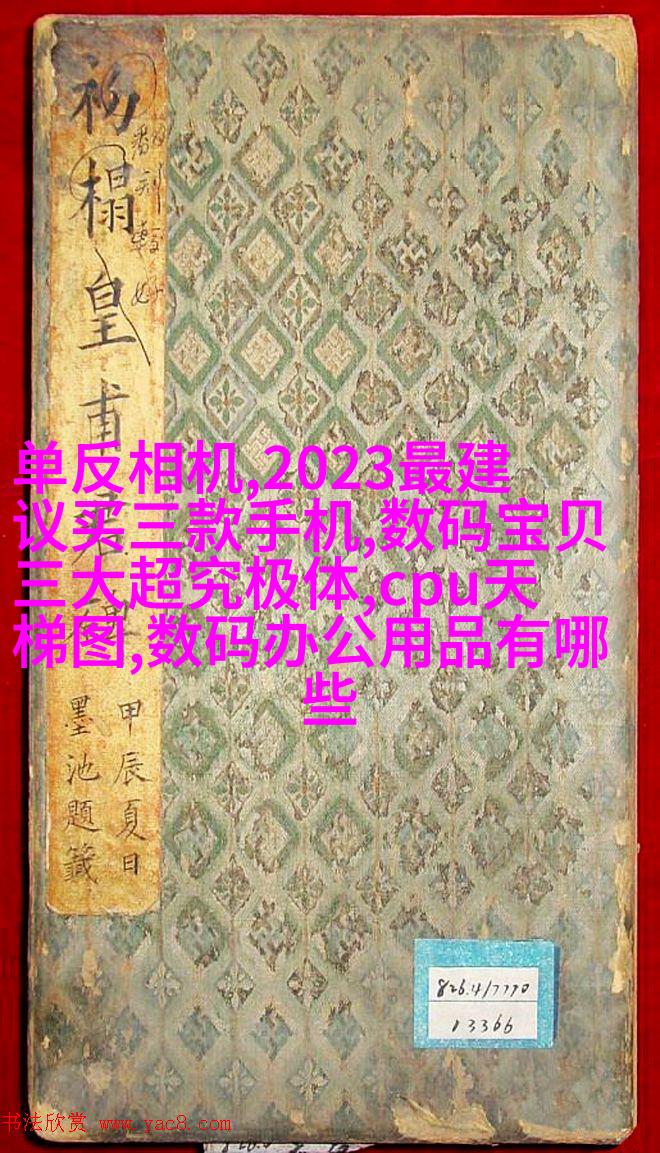 初榻皇甫君碑
翻刻較好
甲辰夏日
墨池題籤
单反相机,2023最建
议买三款手机,数码宝贝
三大超究极体,cpu天
梯图,数码办公用品有哪
些
826.4/7770
13366
书法欣赏 www.yac8.com